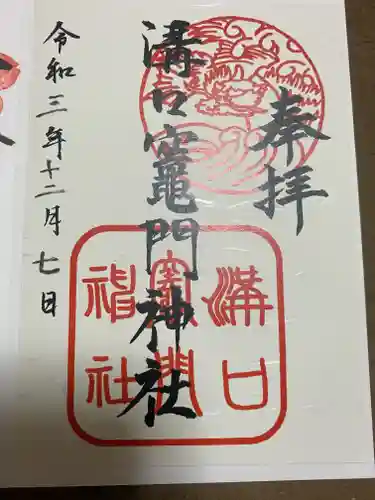 奉拝
溝口竈門神社
令和三年十二月七日
溝口
竈門
神社